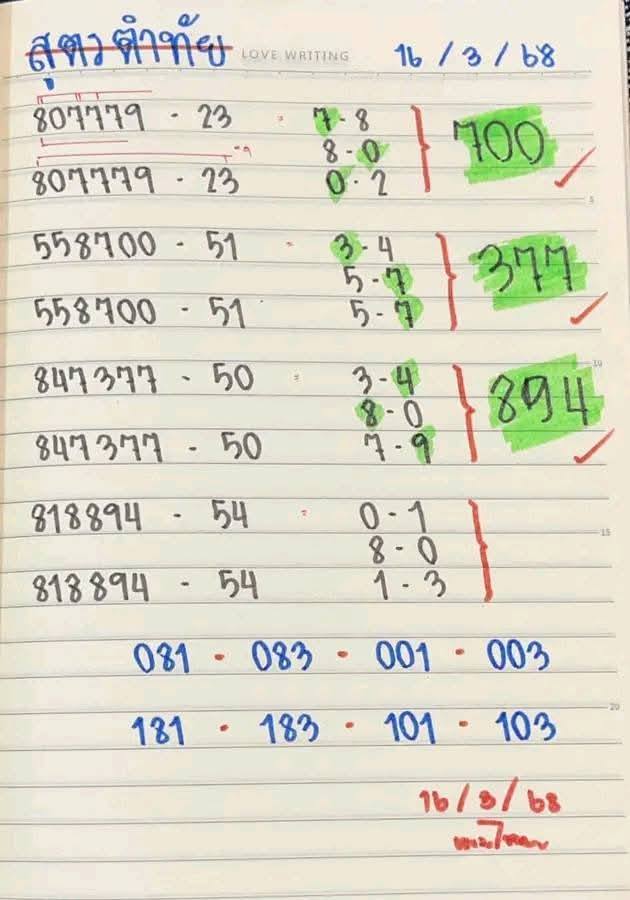 สูตรคำทัย LOVE WRITING 16/3/68
807779 - 23 = 7-8
8-0 700
807779 - 23 0-2
5
558700 - 51 = 3-4
5-7 377
558700 - 51 5-7
10
847377 - 50 = 3-4
8-0 894
847377 - 50 7-9
818894 - 54 = 0-1
15
8-0
818894 - 54 1-3
081 - 083 - 001 - 003
20
181 - 183 - 101 - 103
16/3/68